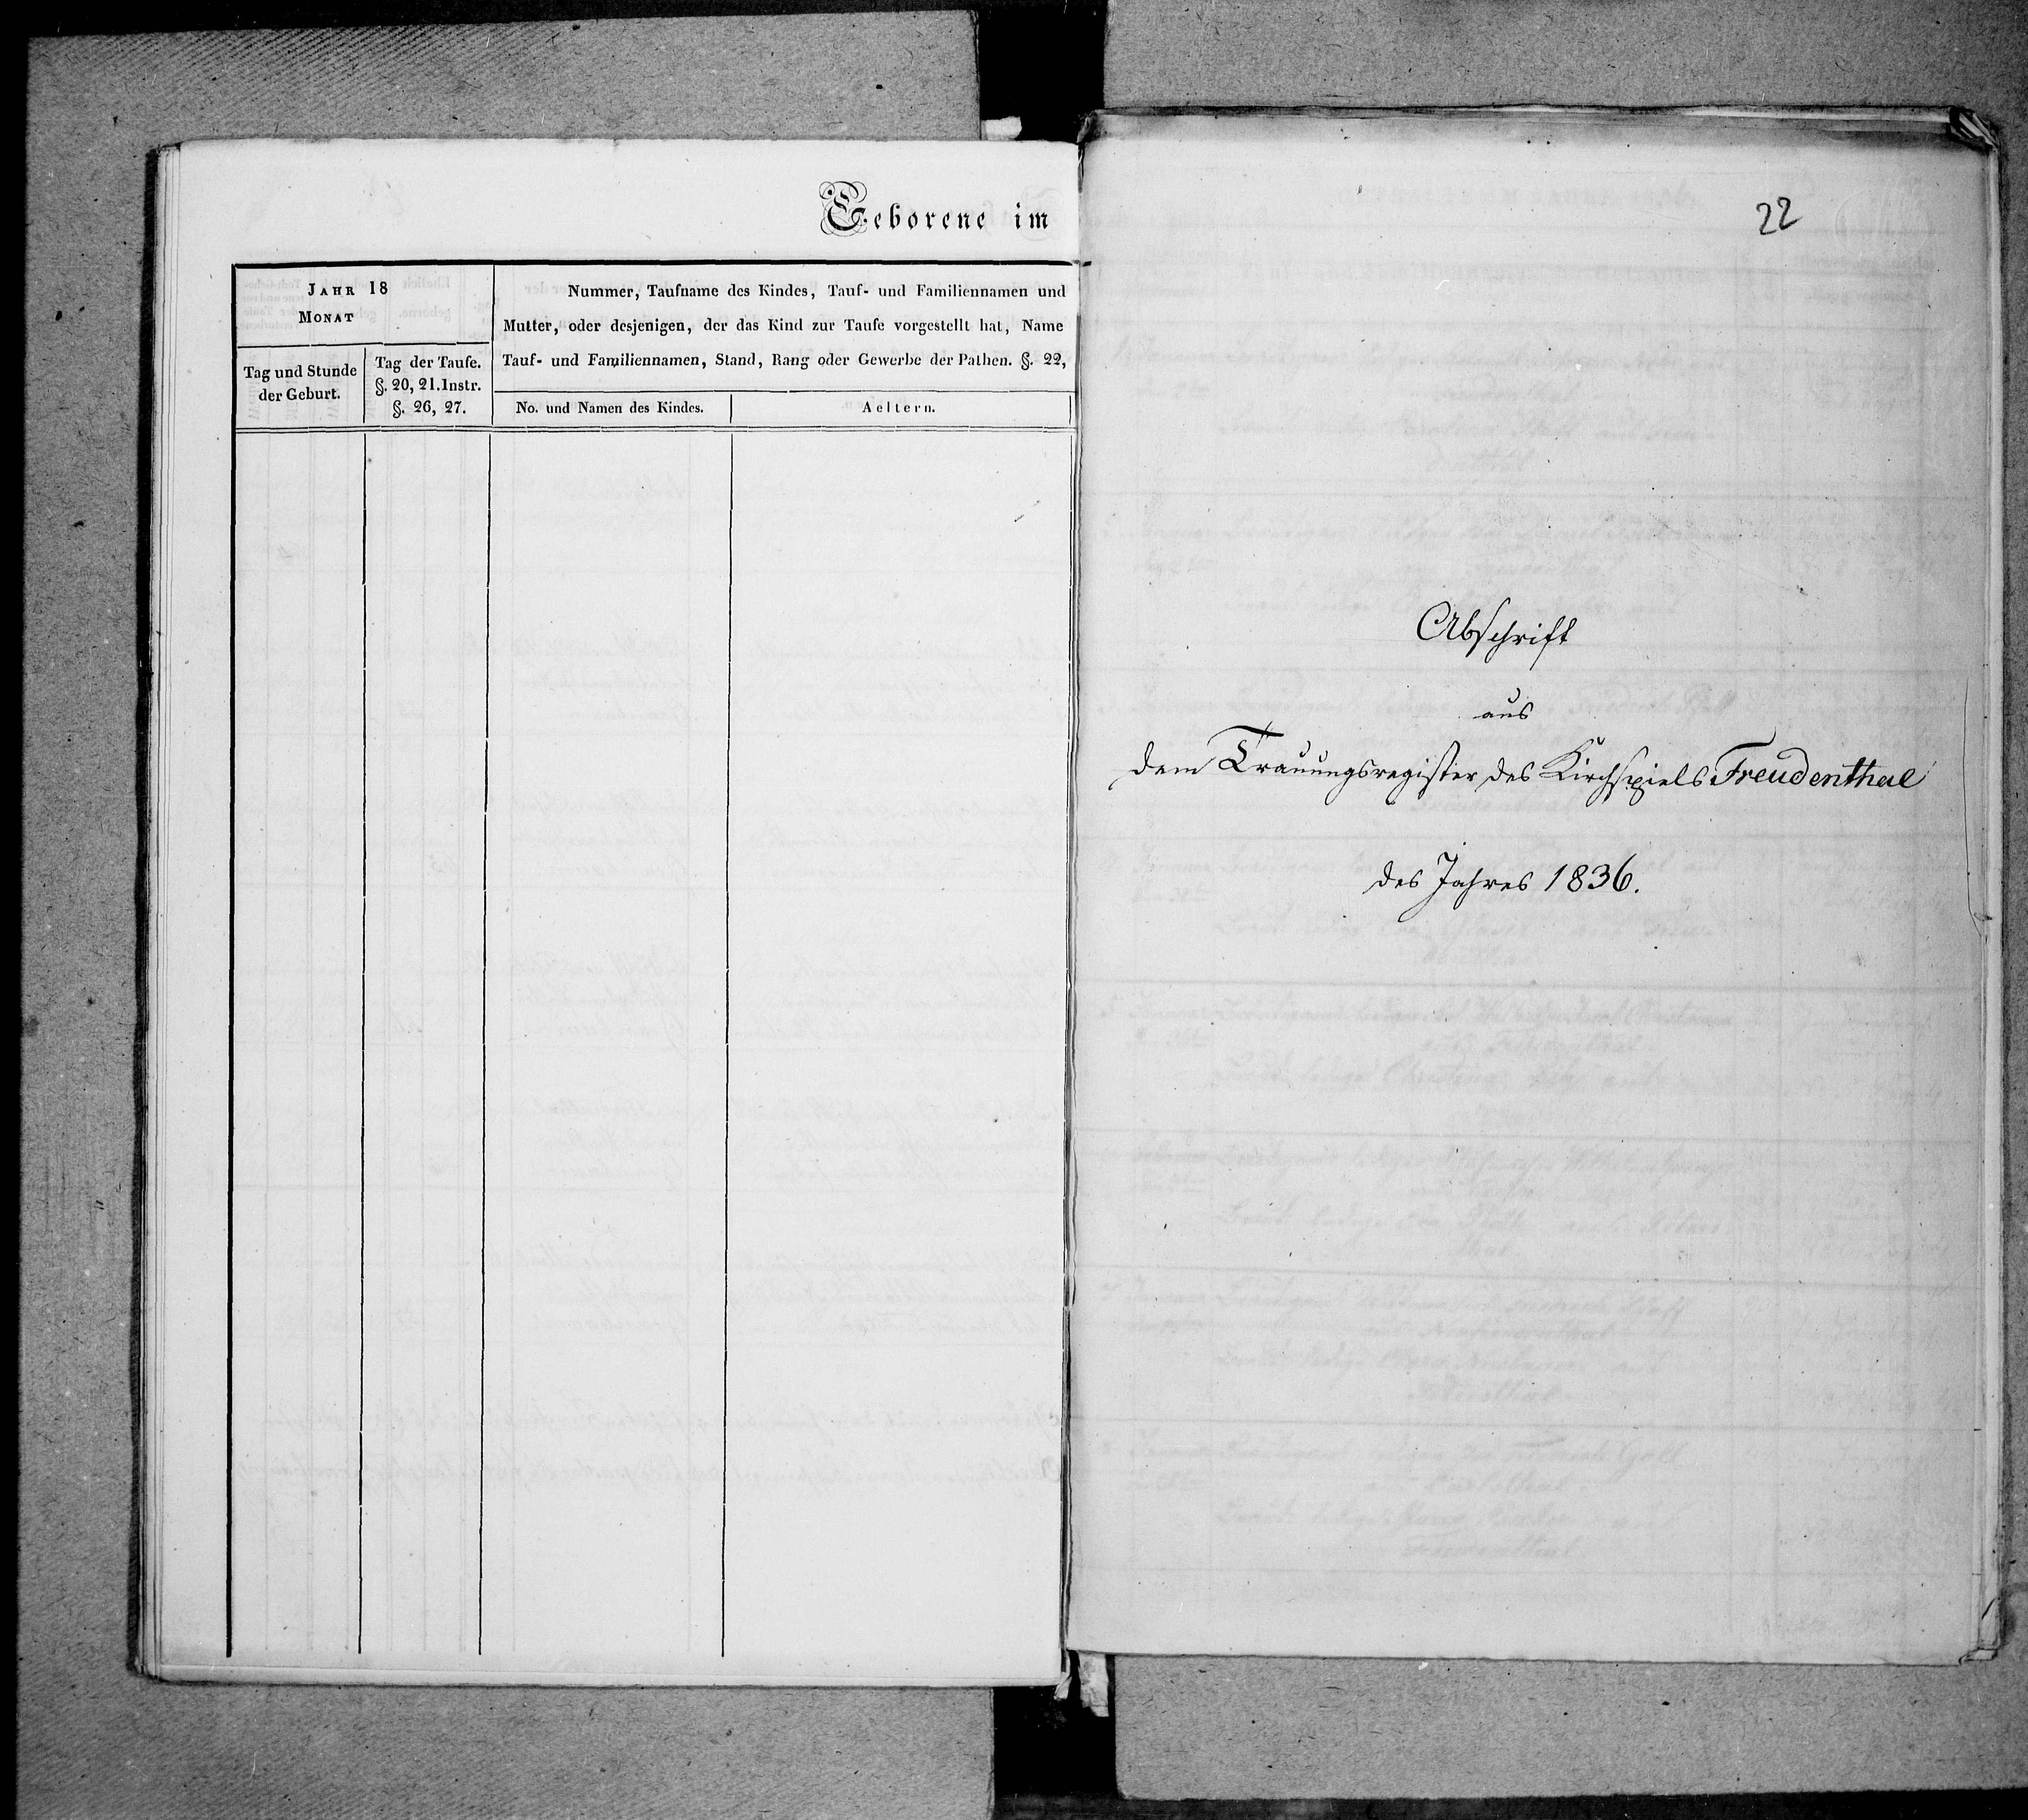 Geborene im
JAHR 18
MONAT
Tag und Stunde
der Geburt.
Tag der Taufe.
§. 20, 21. Instr.
§. 26, 27.
Nummer, Taufname des Kindes, Tauf- und Familiennamen und
Mutter, oder desjenigen, der das Kind zur Taufe vorgestellt hat, Name
Tauf- und Familiennamen, Stand, Rang oder Gewerbe der Pathen. §. 22,
No. und Namen des Kindes.
Aeltern.
22
Abschrift
aus
dem Trauungsregister des Kirchspiels Freudenthal
des Jahres 1836.